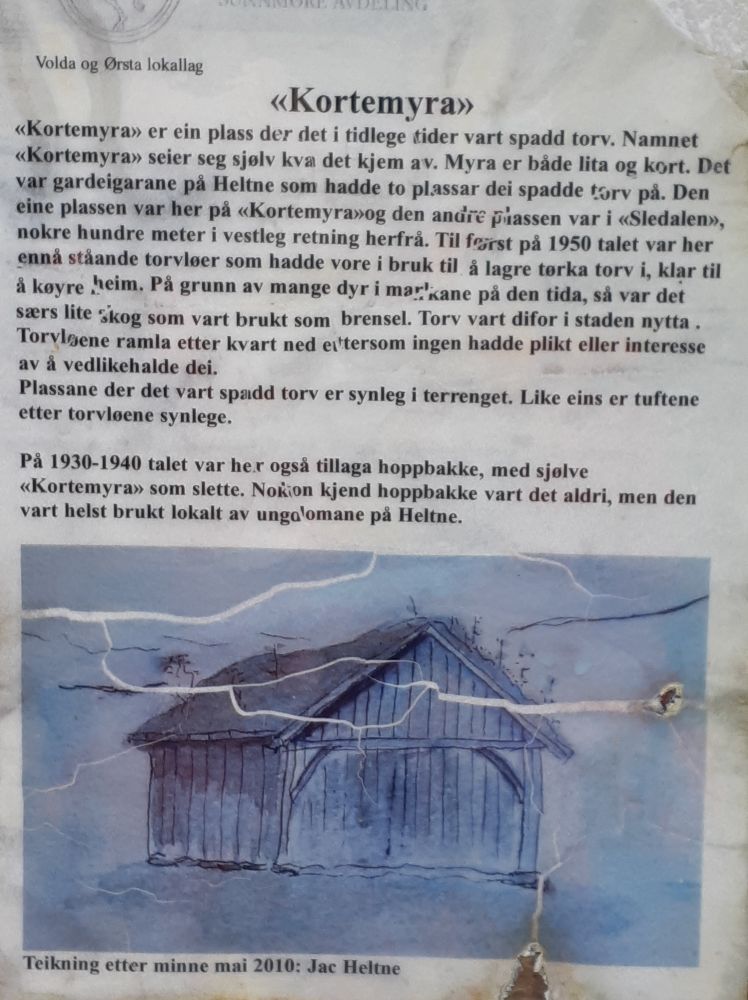 SUNNMØRE AVDELING
Volda og Ørsta lokallag
«Kortemyra»
«Kortemyra» er ein plass der det i tidlege tider vart spadd torv. Namnet
«Kortemyra» seier seg sjølv kva det kjem av. Myra er både lita og kort. Det
var gardeigarane på Heltne som hadde to plassar dei spadde torv på. Den
eine plassen var her på «Kortemyra»og den andre plassen var i «Sledalen»,
nokre hundre meter i vestleg retning herfrå. Til først på 1950 talet var her
ennå ståande torvløer som hadde vore i bruk til å lagre tørka torv i, klar til
å køyre heim. På grunn av mange dyr i markane på den tida, så var det
særs lite skog som vart brukt som brensel. Torv vart difor i staden nytta .
Torvløene ramla etter kvart ned ettersom ingen hadde plikt eller interesse
av å vedlikehalde dei.
Plassane der det vart spadd torv er synleg i terrenget. Like eins er tuftene
etter torvløene synlege.
På 1930-1940 talet var her også tillaga hoppbakke, med sjølve
«Kortemyra» som slette. Nokon kjend hoppbakke vart det aldri, men den
vart helst brukt lokalt av ungdomane på Heltne.
Teikning etter minne mai 2010: Jac Heltne